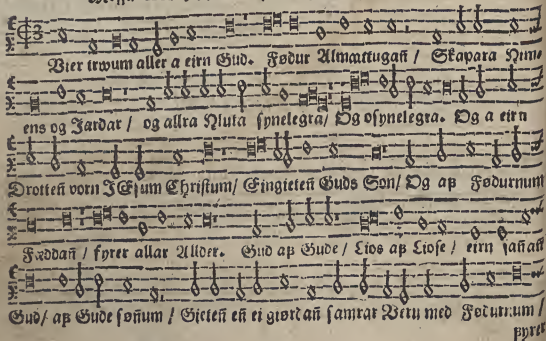 Vier trwum aller a eirn Gud. Fødur Almættugañ / Skapara Nim-
ens og Jardar / og allra Hluta synelegra / Og osynelegra. Og a eirn
Drotteñ vorn JEsum Christum / Eingieteñ Guds Son / Og aß Fødurnum
Fæddañ / fyrer allar Allder. Gud aß Gude / Lios aß Liose / eirn sañañ
Gud / aß Gude soñum / Gieteñ eñ ei giørdañ samrar Veru med Fødurnum /
fyrer